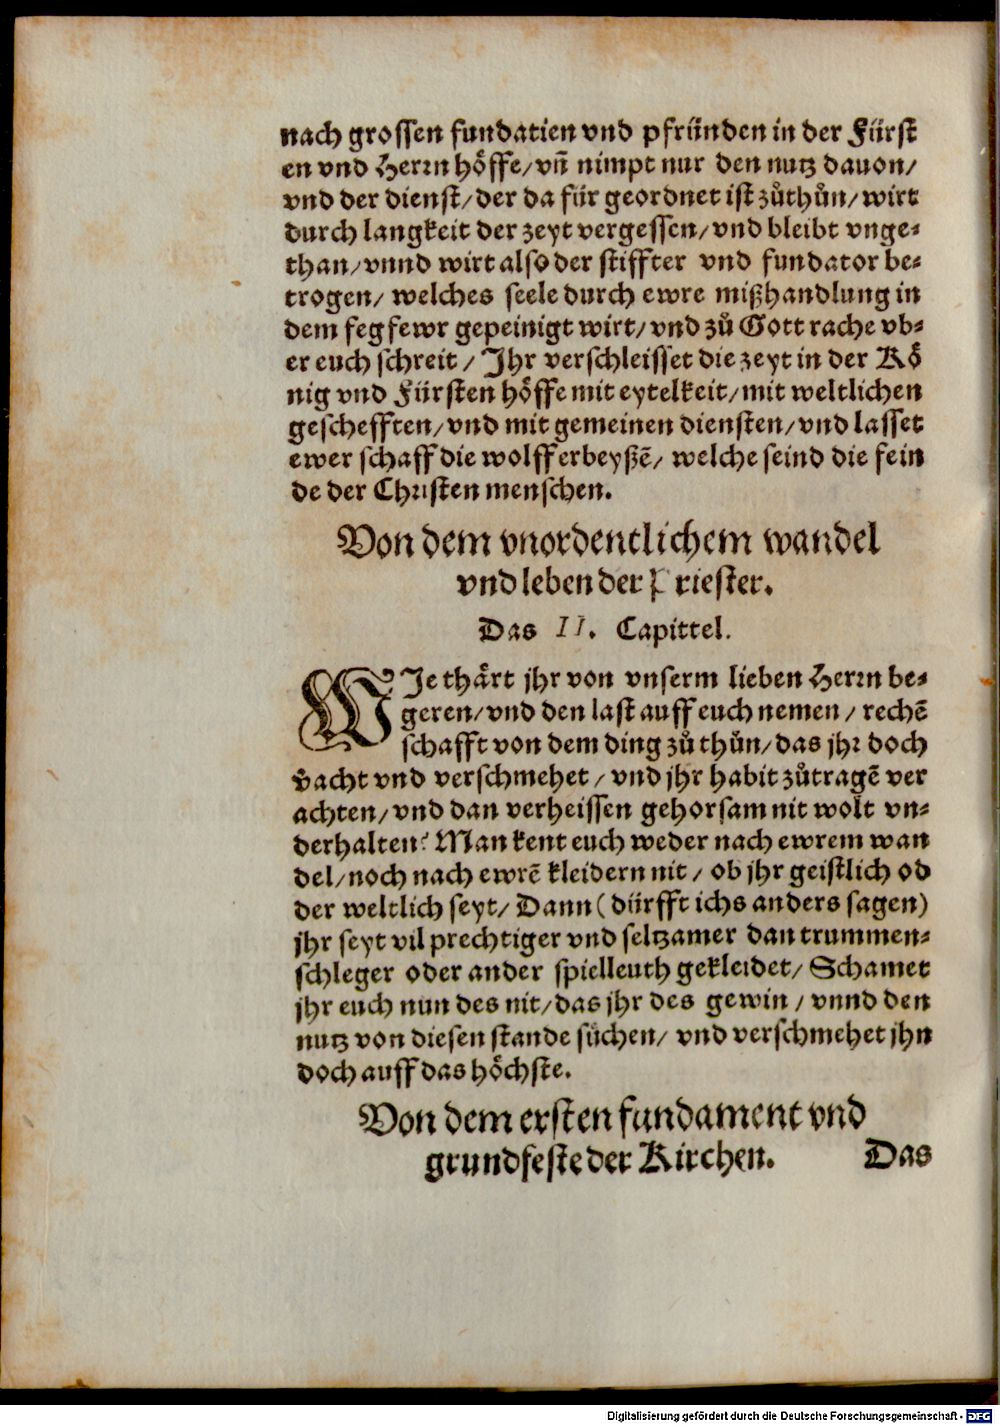 nach grossen fundatien vnd pfründen in der Fürst
en vnd Herrn höffe/ vñ nimpt nur den nutz dauon/
vnd der dienst/ der da für geordnet ist zůthůn/ wirt
durch langkeit der zeyt vergessen/ vnd bleibt vnge⸗
than/ vnnd wirt also der stiffter vnd fundator be⸗
trogen/ welches seele durch ewre mißhandlung in
dem fegfewr gepeinigt wirt/ vnd zů Gott rache vb⸗
er euch schreit / Jhr verschleisset die zeyt in der Kö
nig vnd Fürsten höffe mit eytelkeit/ mit weltlichen
geschefften/ vnd mit gemeinen diensten/ vnd lasset
ewer schaff die wolff erbeyßẽ/ welche seind die fein
de der Christen menschen.
Von dem vnordentlichem wandel
vnd leben der Priester.
Das II. Capittel.
WJe thärt jhr von vnserm lieben Herrn be⸗
geren/ vnd den last auff euch nemen / rechẽ
schafft von dem ding zů thůn/ das jhr doch
vacht vnd verschmehet / vnd jhr habit zůtragẽ ver
achten/ vnd dan verheissen gehorsam nit wolt vn⸗
derhalten? Man kent euch weder nach ewrem wan
del/ noch nach ewrẽ kleidern nit / ob jhr geistlich od
der weltlich seyt/ Dann (dürfft ichs anders sagen)
jhr seyt vil prechtiger vnd seltzamer dan trummen⸗
schleger oder ander spielleuth gekleidet/ Schamet
jhr euch nun des nit/ das jhr des gewin / vnnd den
nutz von diesen stande süchen/ vnd verschmehet jhn
doch auff das höchste.
Von dem ersten fundament vnd
grundfeste der Kirchen. Das
Digitalisierung gefördert durch die Deutsche Forschungsgemeinschaft - DFG